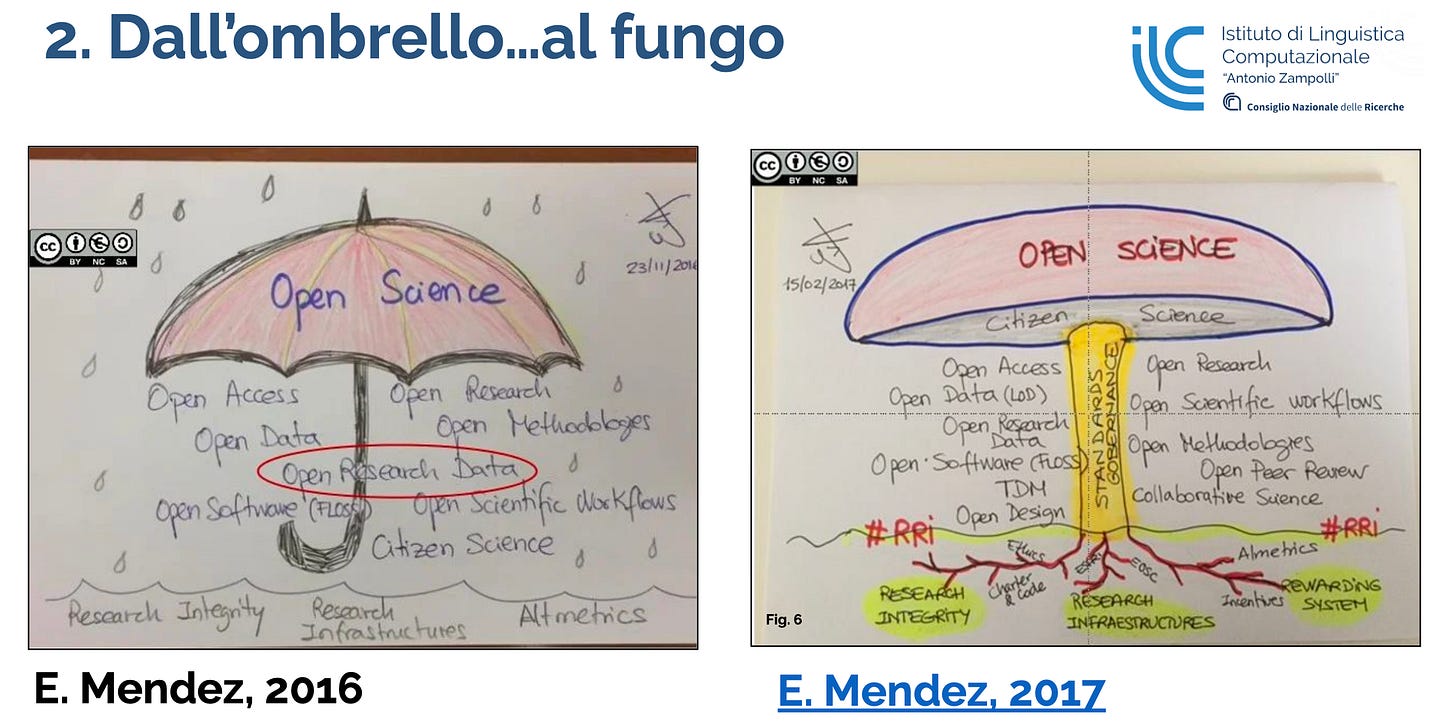 2. Dall'ombrello...al fungo
ilc
Istituto di Linguistica
Computazionale
"Antonio Zampolli"
Consiglio Nazionale delle Ricerche
cc
BY NC SA
23/11/2016
Open Science
Open Access
Open Research
Open Data
Open Methodologies
Open Research Data
Open Software (FLOSS)
Open Scientific Workflows
Citizen Science
Research Integrity
Research
Infrastructures
Altmetrics
E. Mendez, 2016
cc
BY NC SA
15/02/2017
OPEN SCIENCE
Citizen Science
STANDARDS
GOBERNANCE
Open Access
Open Data (LOD)
Open Research
Data
Open Software (FLOSS)
TDM
Open Design
Open Research
Open Scientific workflows
Open Methodologies
Open Peer Review
Collaborative Science
#RRi
#RRi
Ethics
Charter
& Code
ESFRI
EOSC
Almetrics
Incentives
RESEARCH
INTEGRITY
RESEARCH
INFRAESTRUCTURES
REWARDING
SYSTEM
Fig. 6
E. Mendez, 2017